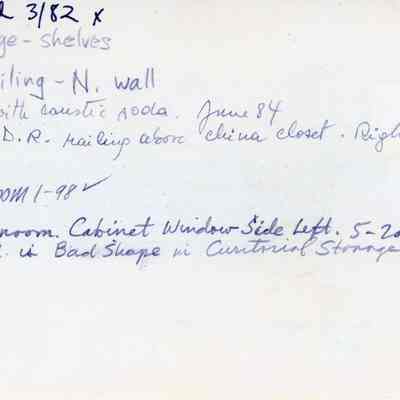 3/82 x
ge - shelves
iling - N. wall
with caustic soda. June 84
D.R. railing above china closet. Righ
oom 1-98 ✓
nroom. Cabinet Window Side Left. 5-20
is Bad Shape in Curitorial Storage